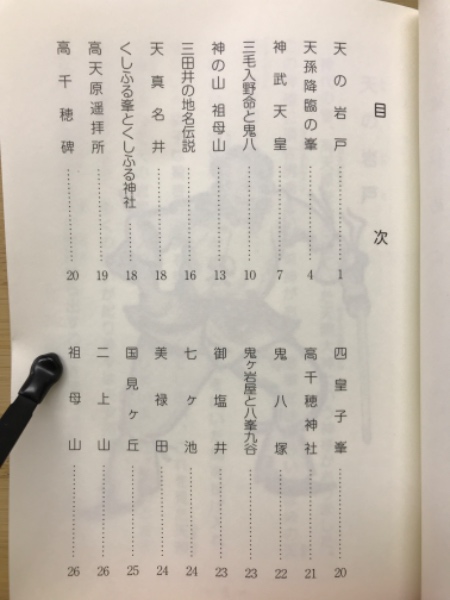 目次
天の岩戸……………1
天孫降臨の峯……………4
神武天皇……………7
三毛入野命と鬼八……………10
神の山 祖母山……………13
三田井の地名伝説……………16
天真名井……………18
くしふる峯とくしふる神社……………18
高天原遥拝所……………19
高千穂碑……………20
四皇子峯……………20
高千穂神社……………21
鬼八塚……………22
鬼ヶ岩屋と八峯九谷……………23
御塩井……………23
七ヶ池……………24
美禄田……………24
国見ヶ丘……………25
二上山……………26
祖母山……………26